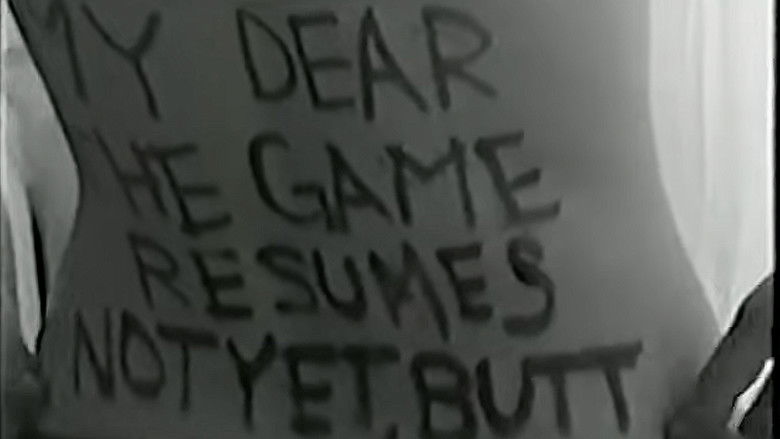 MY DEAR
THE GAME
RESUMES
NOT YET, BUTT